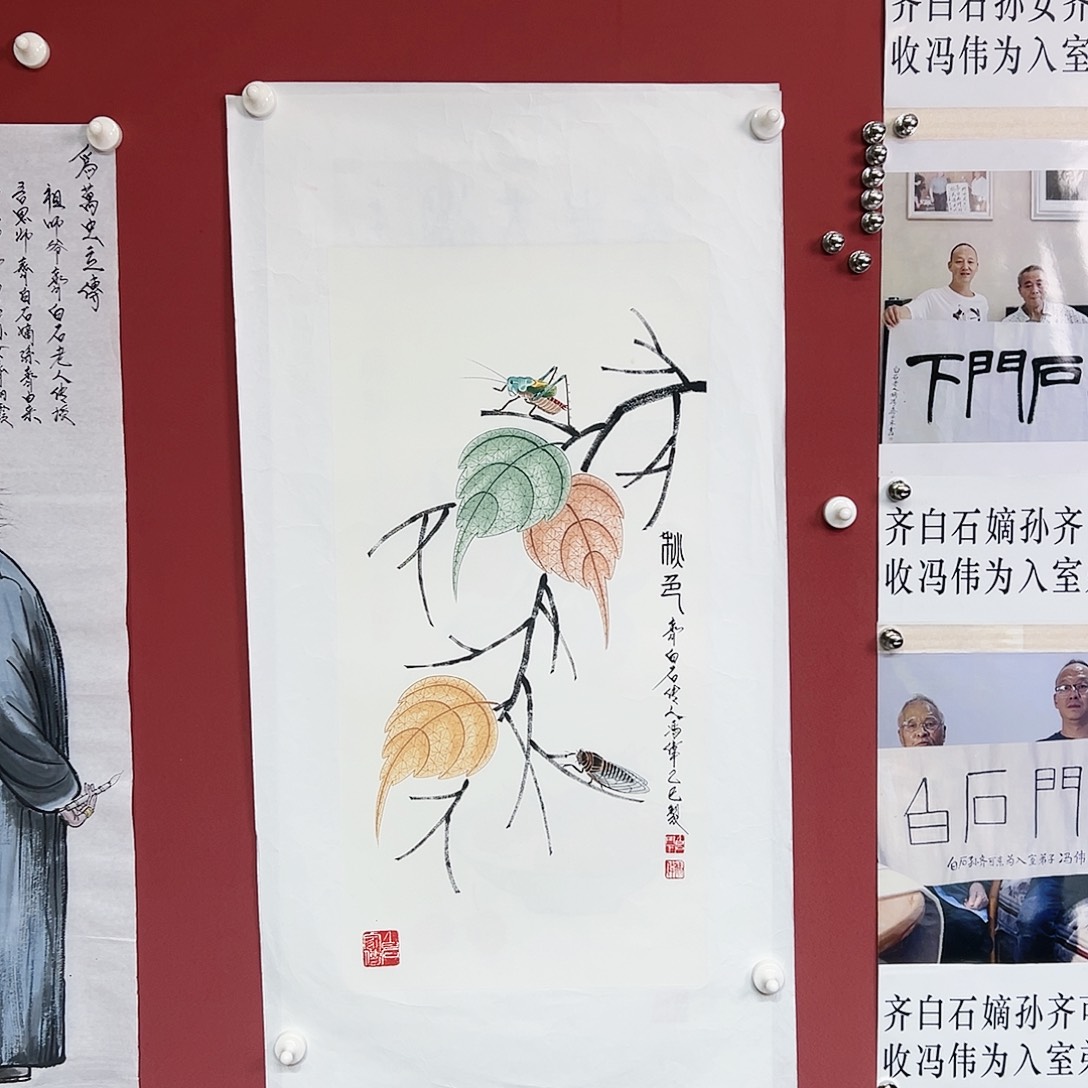 為萬史立傳
祖师爷齊白石老人传授
吾恩师齊白石嫡孫齊由来
秋色
齊白石傳人馮偉乙巳製
齐白石孙女齐
收冯伟为入室
下門石
齐白石嫡孙齐
收冯伟为入室
白石門
白石孙齐可来为入室弟子冯伟
齐白石嫡孙齐可
收冯伟为入室弟